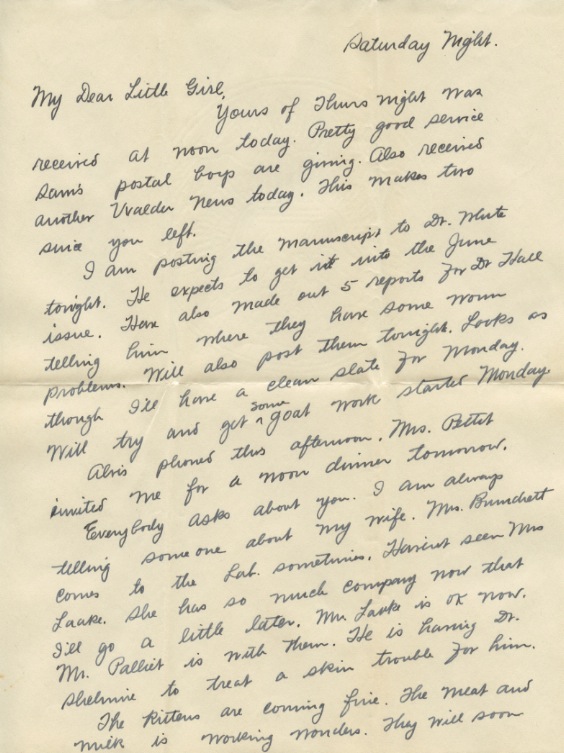 Saturday Night.
My Dear Little Girl,
Yours of Thurs night was
received at noon today. Pretty good service
Sam's postal boys are giving. Also received
another Uvalde News today. This makes two
since you left.
I am posting the manuscript to Dr. White
tonight. He expects to get it into the June
issue. Have also made out 5 reports for Dr Hall
telling him where they have some worm
problems. Will also post them tonight. Looks as
though I'll have a clean slate for Monday.
Will try and get some goat work started Monday.
Alvis phoned this afternoon. Mrs. Pettit
invited me for a noon dinner tomorrow.
Everybody asks about you. I am always
telling someone about my wife. Mrs. Brundrett
comes to the Lab. sometimes. Havent seen Mrs
Laake. She has so much company now that
I'll go a little later. Mr. Laake is OK now.
Mr. Palliet is with them. He is having Dr.
Shelmire to treat a skin trouble for him.
The kittens are coming fine. The meat and
milk is working wonders. They will soon